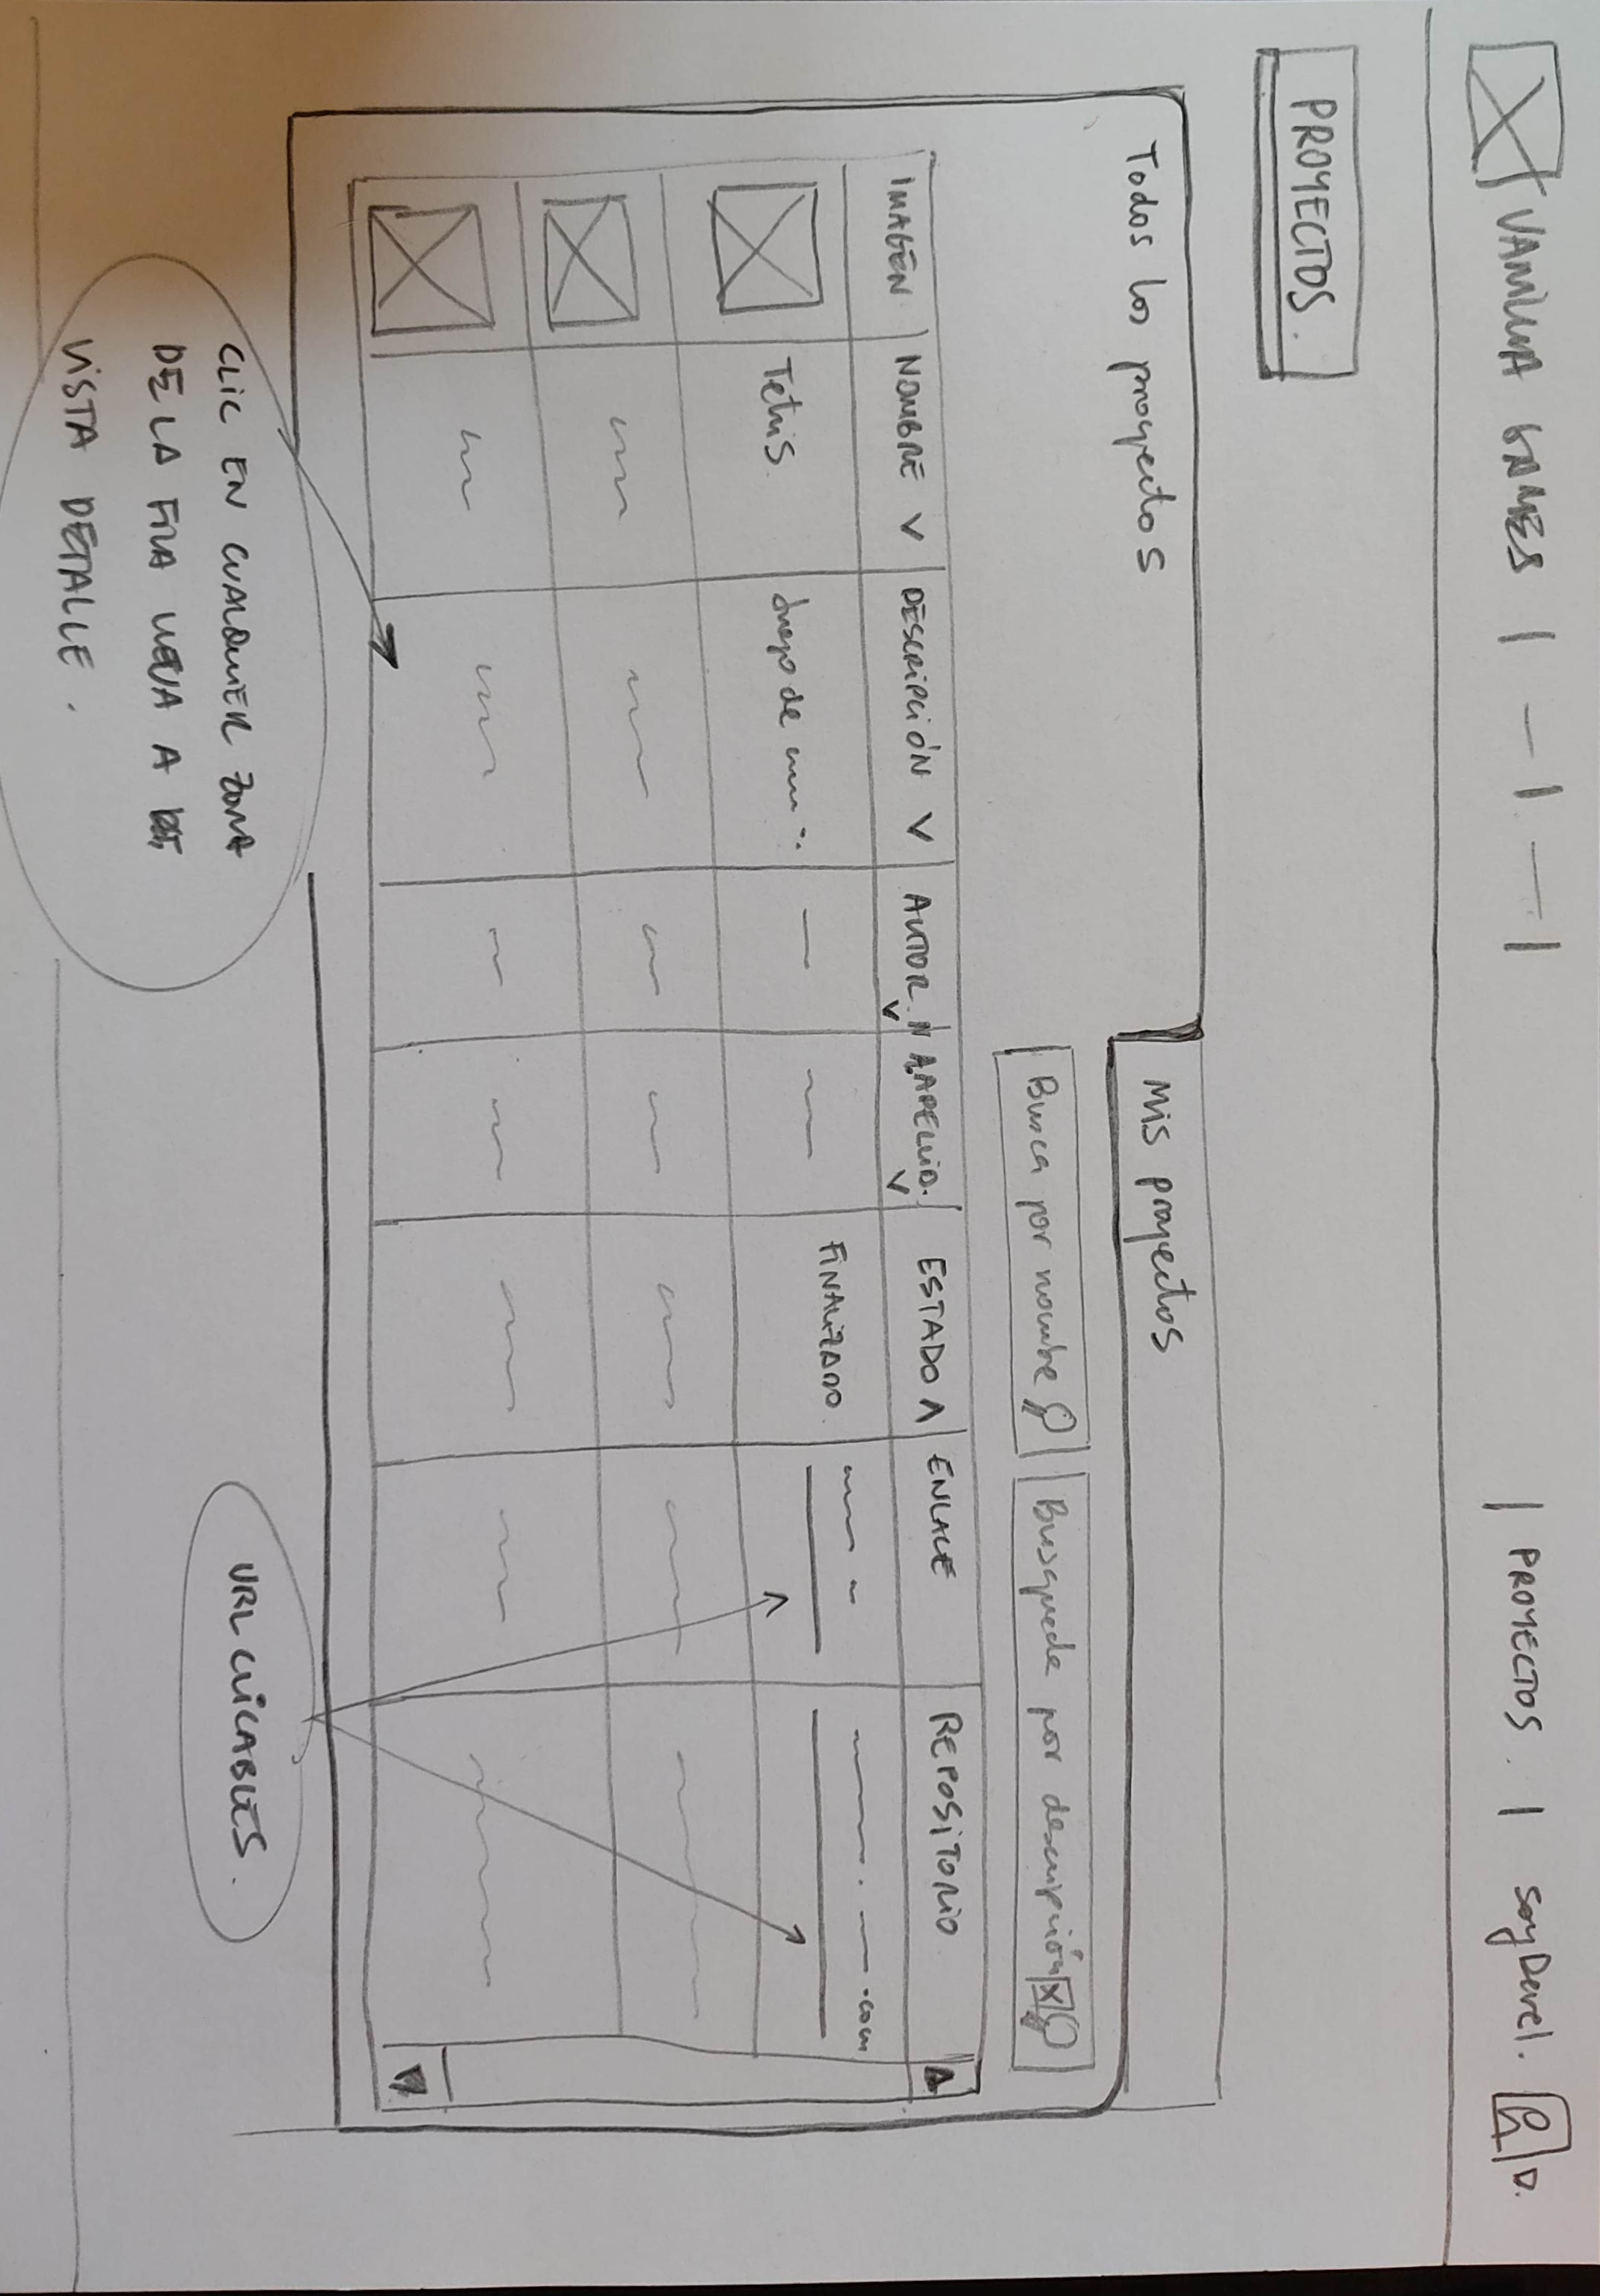 VANILLA GAMES | — | — | | PROYECTOS. | soyDevel. D.
PROYECTOS.
Todos los proyectos
Mis proyectos
Busca por nombre
Busqueda por descripción X
IMAGEN NOMBRE V DESCRIPCIÓN V AUTOR. N V APELLID. V ESTADO Λ ENLACE REPOSITORIO
Tetris. Juego de FINALIZADO. .com
CLIC EN CUALQUIER ZONA
DE LA FILA LLEVA A
VISTA DETALLE.
URL CLICABLES.